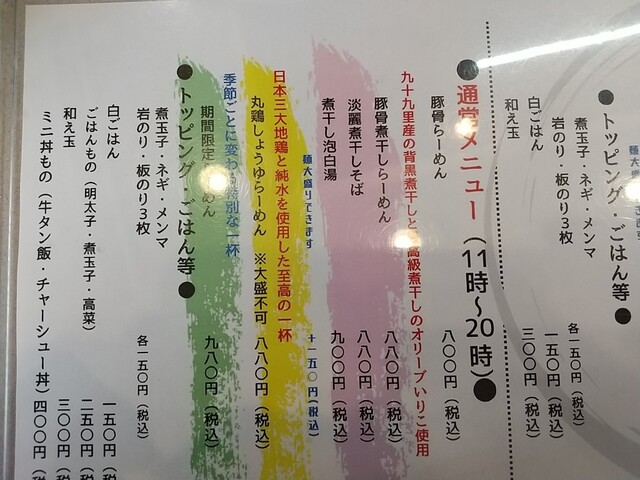 ●トッピング・ごはん等●
煮玉子・ネギ・メンマ
岩のり・板のり3枚
各一五〇円（税込）
白ごはん 一五〇円（税込）
和え玉 三〇〇円（税込）
●通常メニュー（11時～20時）●
豚骨らーめん 八〇〇円（税込）
九十九里産の背黒煮干しと 高級煮干しのオリーブいりこ使用
豚骨煮干しらーめん 八八〇円（税込）
淡麗煮干しそば 八八〇円（税込）
煮干し泡白湯 九〇〇円（税込）
麺大盛りできます +一五〇円（税込）
日本三大地鶏と純水を使用した至高の一杯
丸鶏しょうゆらーめん ※大盛不可 八八〇円（税込）
季節ごとに変わる特別な一杯
期間限定 めん 九八〇円（税込）
●トッピング ごはん等●
煮玉子・ネギ・メンマ
岩のり・板のり3枚
各一五〇円（税込）
白ごはん 一五〇円（税込）
ごはんもの（明太子・煮玉子・高菜） 二五〇円（税込
和え玉 三〇〇円（税込
ミニ丼もの（牛タン飯・チャーシュー丼） 四〇〇円（税